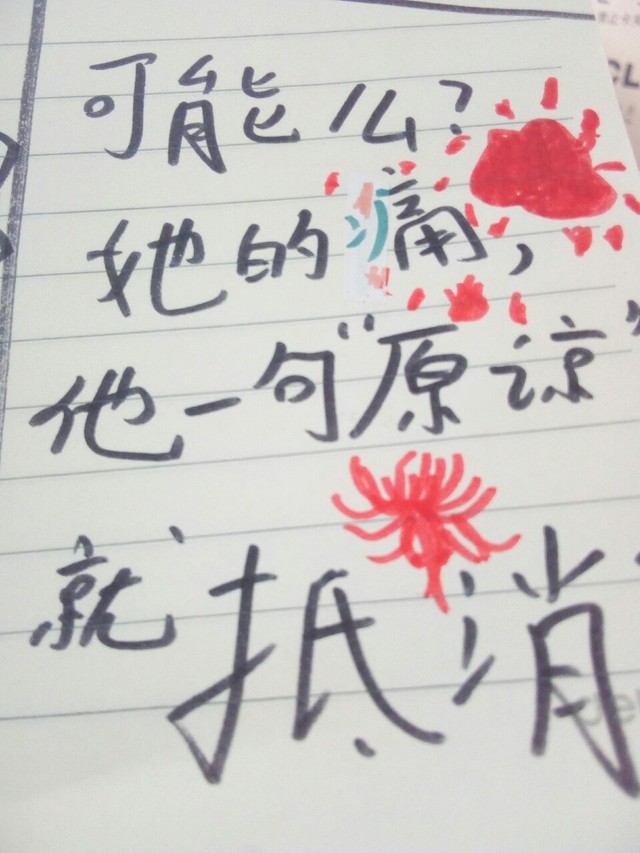 可能么?
她的痛,
他一句“原谅”
就抵消